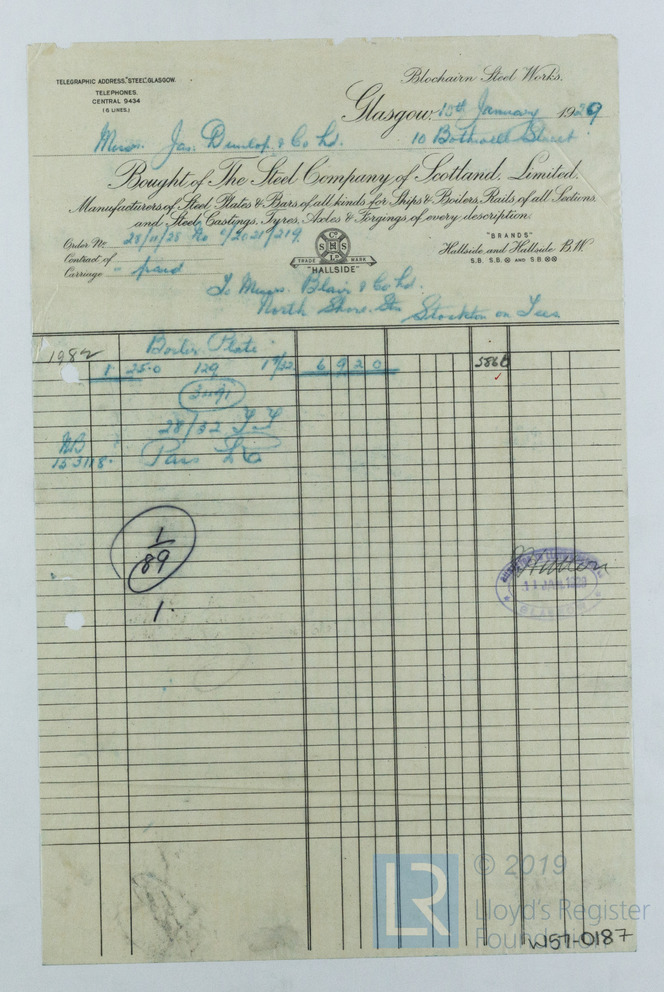 TELEGRAPHIC ADDRESS, "STEEL", GLASGOW.
TELEPHONES.
CENTRAL 9434
(6 LINES.)
Blochairn Steel Works,
Glasgow, 15th January 1929
Messrs. Jas. Dunlop & Co Ld. 10 Bothwell Street
Bought of The Steel Company of Scotland, Limited.
Manufacturers of Steel Plates & Bars of all kinds for Ships & Boilers, Rails of all Sections.
and Steel Castings, Tyres, Axles & Forgings of every description.
Order No 28/11/28 No 2021/219
Contract of
Carriage - paid
Co
S H S
S
Ld
TRADE MARK
"HALLSIDE"
"BRANDS"
Hallside and Hallside B.W.
S.B. S.B.⊗ AND S.B.⊗⊗
To Messrs. Blair & Co Ld.
North Shore Stn Stockton on Tees
1982 Boiler Plate
1 25.0 129 6920 5866
3491
28/32
NB
Pars
1/89
1.
11 JAN 1929
GLASGOW
© 2019
LR
Lloyd's Register
Foundation
W157-0187